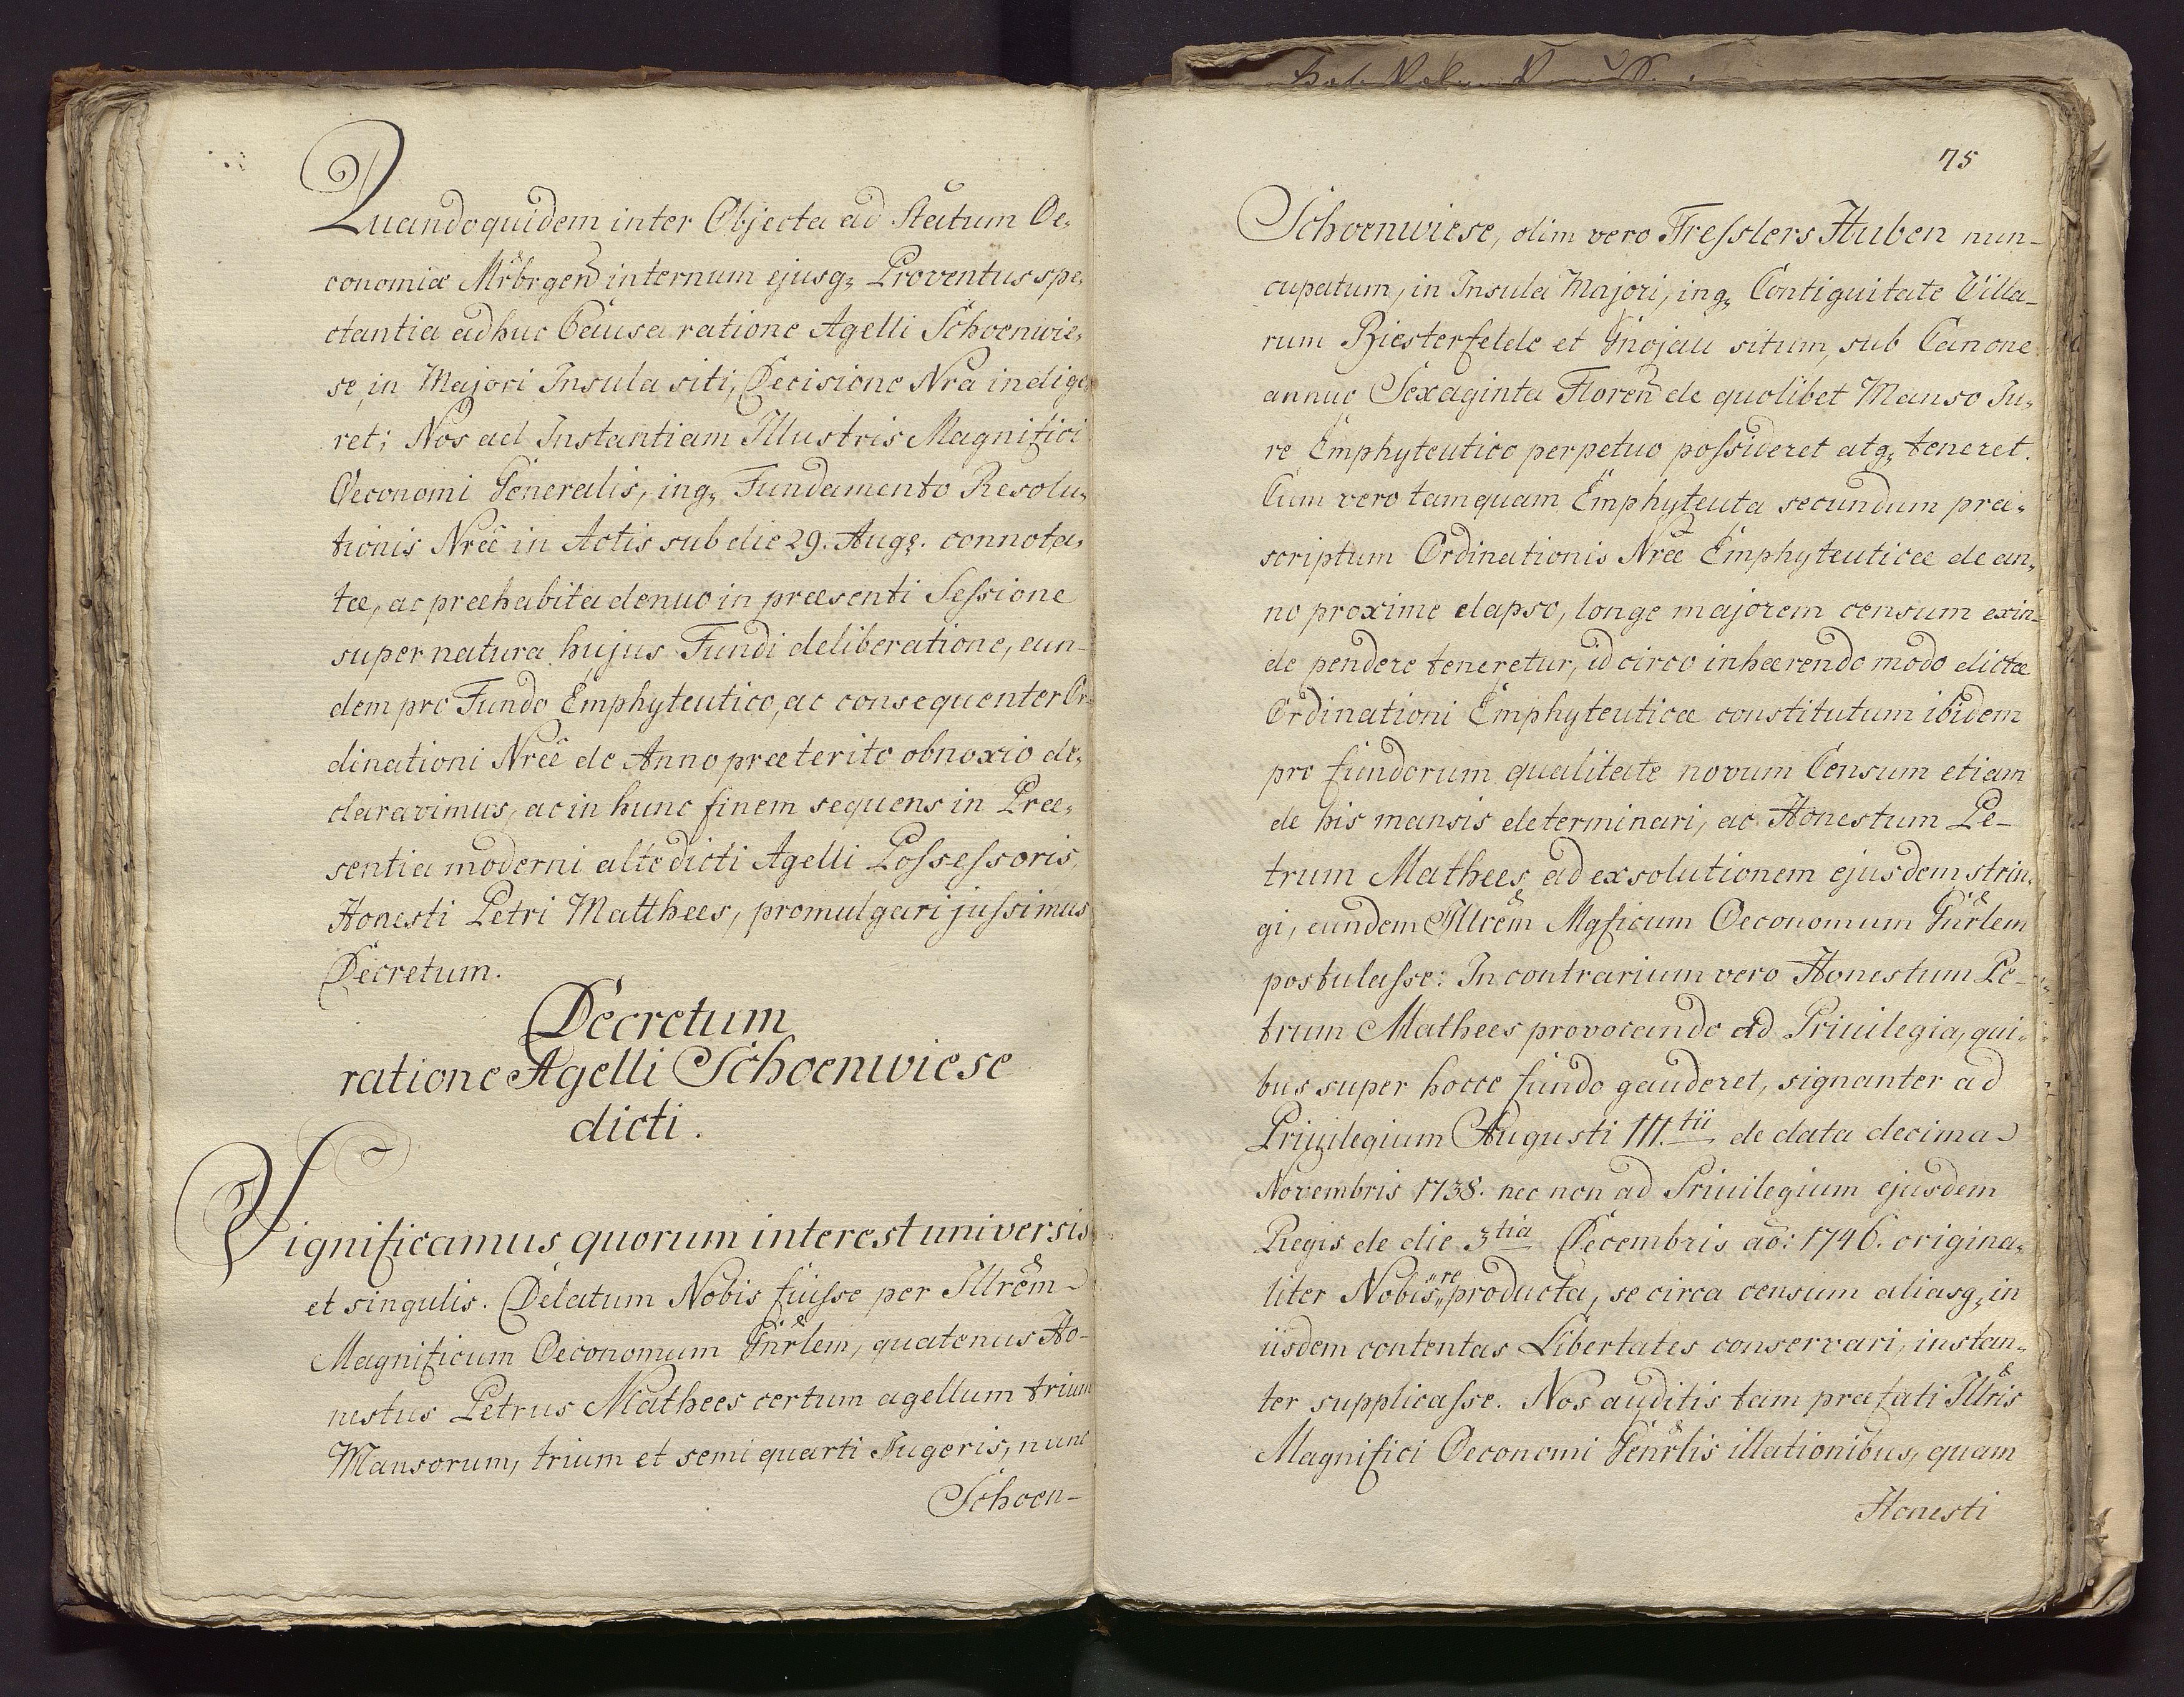 Quandoquidem inter Objecta ad Statum Oe,
conomiæ Mrbrgen internum ejusq, Proventus spe,
ctantia adhuc Causa ratione Agelli Schoenwie,
se, in Majori Insula siti, Decisione Nrâ indige,
ret; Nos ad Instantiam Illustris Magnifici
Oeconomi Generalis, inq, Fundamento Resolu,
tionis Nræ in Actis sub die 29. Augs. connota,
tæ, ac præhabita denuo in præsenti Sessione
super natura hujus Fundi deliberatione, eun-
dem pro Fundo Emphyteutico, ac consequenter Or-
dinationi Nræ de Anno præterito obnoxio de,
claravimus, ac in hunc finem sequens in Præ,
sentia moderni alte dicti Agelli Possessoris,
Honesti Petri Matthees, promulgari jussimus
Decretum.
Decretum
ratione Agelli Schoenwiese
dicti.
Significamus quorum interest universis
et singulis. Delatum Nobis fuisse per Illrem
Magnificum Oeconomum Gnrlem, quatenus Ho-
nestus Petrus Mathees certum agellum trium
Mansorum, trium et semi quarti Jugeris, nunc
Schoen-
75
Schoenwiese, olim vero Fresslers Huben nun-
cupatum, in Insula Majori, inq, Contiguitate Villa-
rum Biesterfelde et Gnojau situm, sub Canone
annuo Sexaginta Floren de quolibet Manso Ju,
re Emphyteutico perpetuo possideret atq, teneret.
Cum vero tamquam Emphyteuta secundum præ,
scriptum Ordinationis Nræ Emphyteuticæ de an,
no proxime elapso, longe majorem censum exin-
de pendere teneretur, idcirco inhærendo modo dictæ
Ordinationi Emphyteuticæ constitutum ibidem
pro fundorum qualitate novum Censum etiam
de his mansis determinari, ac Honestum Pe-
trum Mathees ad exsolutionem ejusdem strin,
gi, eundem Illrem Mgficum Oeconomum Gnrlem
postulasse: In contrarium vero Honestum Pe-
trum Mathees provocando ad Privilegia, qui,
bus super hocce fundo gauderet, signanter ad
Privilegium Augusti III.tii de data decima
Novembris 1738. nec non ad Privilegium ejusdem
Regis de die 3tia Decembris ao: 1746. origina,
liter Nobis re producta, se circa censum aliasq, in
iisdem contentas Libertates conservari, instan,
ter supplicasse. Nos auditis tam præfati Illris
Magnifici Oeconomi Genrlis illationibus, quam
Honesti